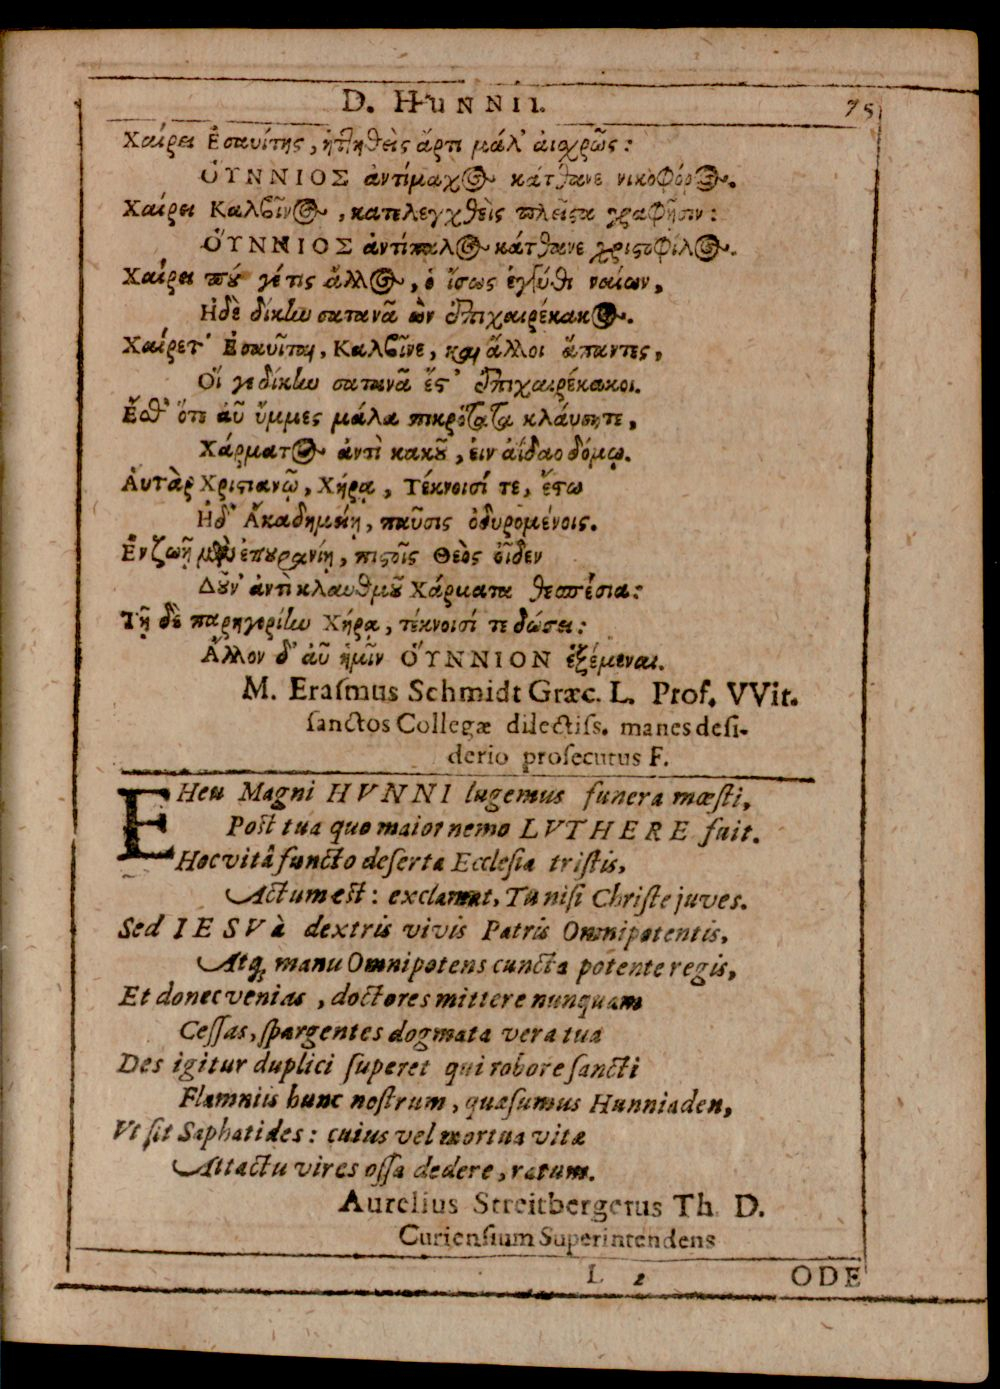 D. HUNNII. 75
Χαίρει Ἐσαυίτης, ἡττηθεὶς ἄρτι μάλ' ἀιχρῶς:
ὍΥΝΝΙΟΣ ἀντίμαχος κάτθανε νικοφόρος.
Χαίρει Καλβῖνος, κατελεγχθεὶς πλεῖστα γραφῇσιν:
ὍΥΝΝΙΟΣ ἀντίπαλος κάτθανε χριστοφίλος.
Χαίρει πού γέ τις ἄλλος, ὁ ἴσως ἐγγύθι ναίων,
Ηδὲ δίκην σατανᾶ ὢν ἐπιχαιρέκακος.
Χαίρετ' Ἐσαυῖται, Καλβῖνε, καὶ ἄλλοι ἅπαντες,
Οἵ γε δίκην σατανᾶ ἔστ' ἐπιχαιρέκακοι.
Ἔσθ' ὅτε ἀῦ ὔμμες μάλα πικρότατα κλάυσητε,
Χάρματος ἀντὶ κακοῦ, ἐιν ἀΐδαο δόμῳ.
Ἀυτὰρ Χριστιανῷ, Χήρᾳ, Τέκνοισί τε, ἔστω
Ἠδ' Ἀκαδημείῃ, παῦσις ὀδυρομένοις.
Ἐν ζωῇ μὲν ἐπουρανίῃ, πιστοῖς Θεὸς οἶδεν
Δοῦν' ἀντὶ κλαυθμοῦ Χάρματα θεσπέσια:
Τῇ δὲ παρηγορίην Χήρᾳ, τέκνοισί τε δώσει:
Ἄλλον δ' ἀῦ ἡμῖν ὍΥΝΝΙΟΝ ἐξέμεναι.
M. Eraſmus Schmidt Græc. L. Prof. VVit.
ſanctos Collegæ dilectiſs. manes deſi-
derio proſecutus F.
EHeu Magni HVNNI lugemus funera mœſti,
Poſt tua quo maior nemo LVTHERE fuit.
Hoc vitâ functo deſerta Eccleſia triſtis,
Actum eſt: exclamat, Tu niſi Chriſte juves.
Sed IESV à dextris vivis Patris Omnipotentis,
Atq; manu Omnipotens cuncta potente regis,
Et donec venias, doctores mittere nunquam
Ceſſas, ſpargentes dogmata vera tua
Des igitur duplici ſuperet qui robore ſancti
Flamniis hunc noſtrum, quæſumus Hunniaden,
Vt ſit Saphatides: cuius vel mortua vitæ
Attactu vires oſſa dedere, ratum.
Aurelius Streitbergerus Th. D.
Curienſium Superintendens
L 2 ODE